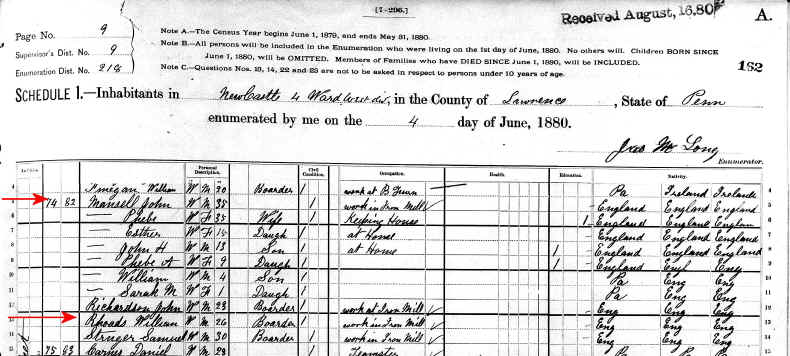 [7-296.]
Received August, 16.80
A.
Page No. 9
Supervisor's Dist. No. 9
Enumeration Dist. No. 218
Note A.—The Census Year begins June 1, 1879, and ends May 31, 1880.
Note B.—All persons will be included in the Enumeration who were living on the 1st day of June, 1880. No others will. Children BORN SINCE
June 1, 1880, will be OMITTED. Members of Families who have DIED SINCE June 1, 1880, will be INCLUDED.
Note C.—Questions Nos. 13, 14, 22 and 23 are not to be asked in respect to persons under 10 years of age.
162
SCHEDULE 1.—Inhabitants in New Castle 4 Ward West dis, in the County of Lawrence, State of Penn
enumerated by me on the 4 day of June, 1880.
Jno Mc Long
Enumerator.
Personal Description. Civil Condition. Occupation. Health. Education. Nativity.
William W M 20 Boarder / work at B Pa Ireland Ireland
74 82 Mansell John W M 35 / work in Iron Mill England England England
— Phebe W F 35 Wife / Keeping House / England England England
— Esther W F 15 Daugh / at Home England England England
— John H W M 13 Son / at Home / England England England
— Phebe A W F 9 Daugh / / England Engl Eng
— William W M 4 Son / Pa Eng Eng
— Sarah M W F 1 Daugh / Pa Eng Eng
Richardson John W M 23 Boarder / work at Iron Mill Eng Eng Eng
Rhoads William W M 26 Boarder / work in Iron Mill Eng Eng Eng
Samuel W M 30 Boarder / work in Iron Mill Eng Eng Eng
75 83 Daniel W M 28 Teamster